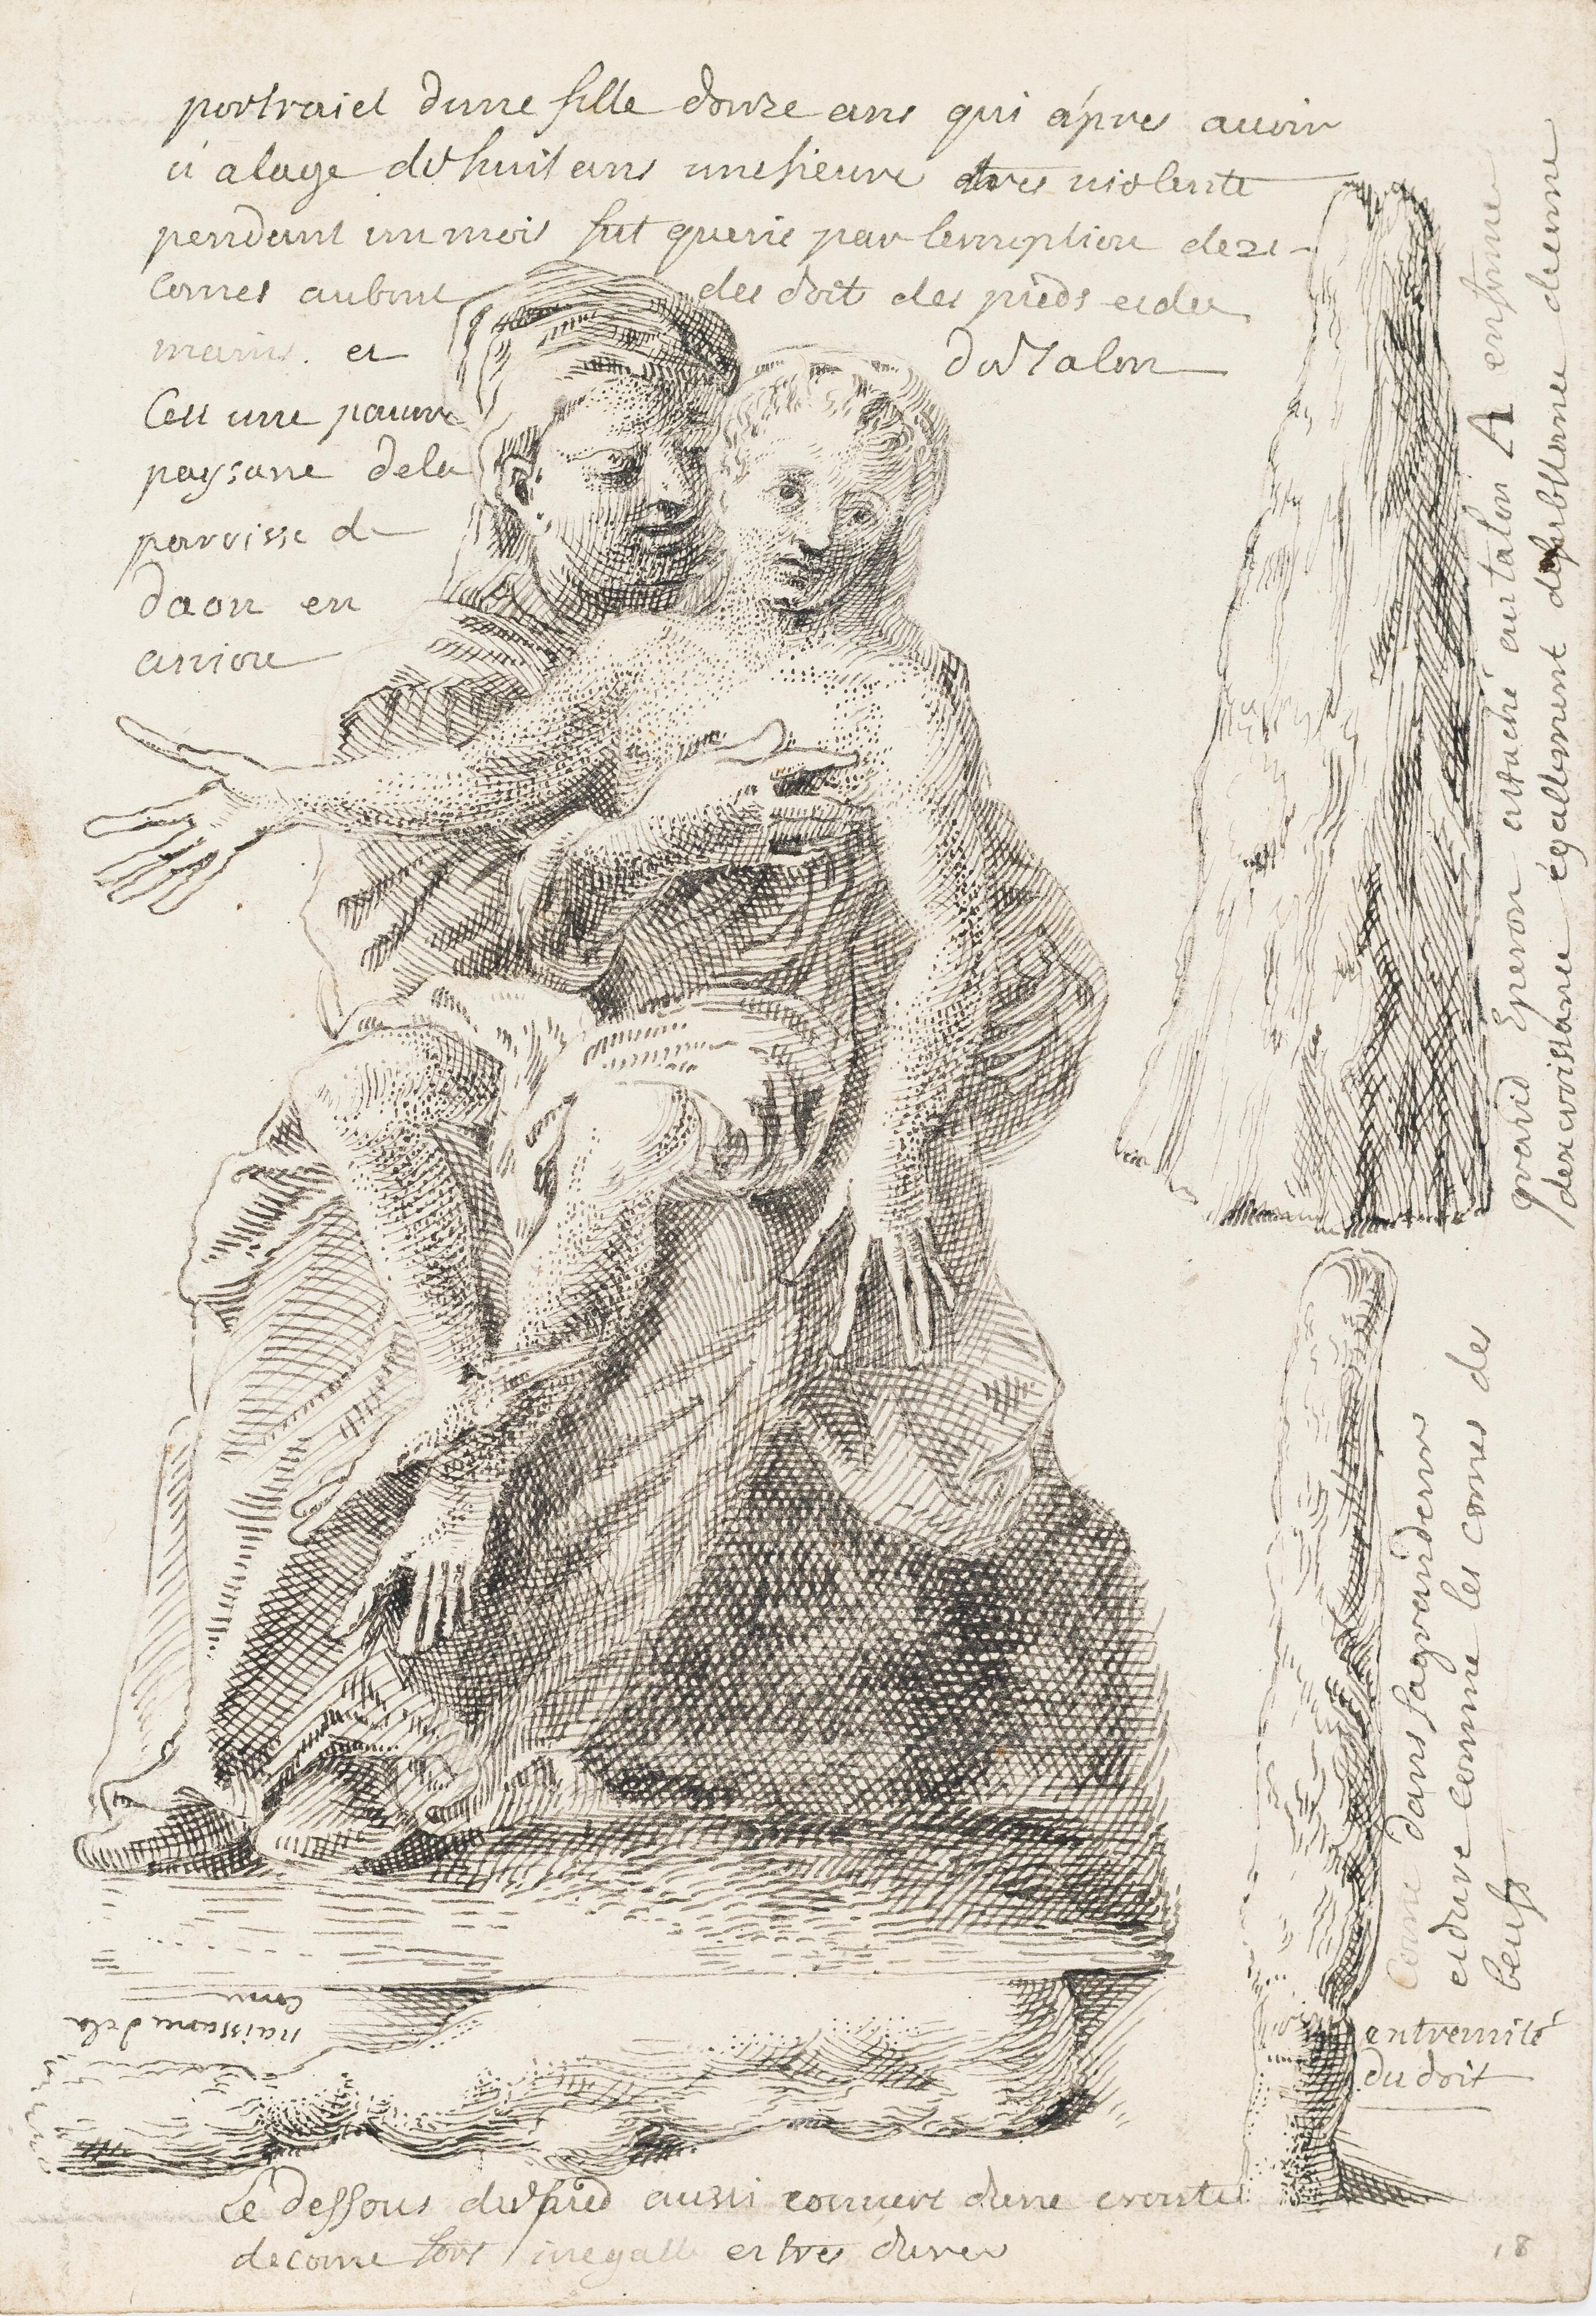 portraict dune fille donze ans qui apres auoir
ú alage de huit ans unefieure tres uiolente
pendant un mois fut guerie par leruption dez
cornes aubout des doit des pieds et des
mains et du talon
Cest une pauure
paysane dela
paroisse de
daon en
aniou
grand Eperon attaché au talon A enforme
dezcroissance égallement de dune
corne dans sa grandeur
et dure comme les cornes des
beufs
extremité
du doit
naissance dela
corne
Le dessous du pied aussi couuert dune croute
decorne fort inegalle et tres dure
18